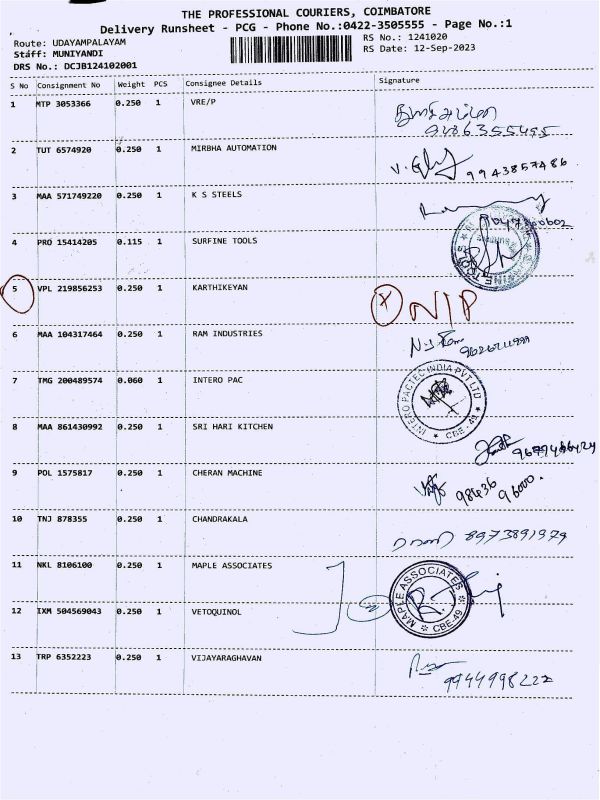 THE PROFESSIONAL COURIERS, COIMBATORE
Delivery Runsheet - PCG - Phone No.:0422-3505555 - Page No.:1
Route: UDAYAMPALAYAM
RS No.: 1241020
Staff: MUNIYANDI
RS Date: 12-Sep-2023
DRS No.: DCJB124102001
S No Consignment No Weight PCS Consignee Details Signature
1 MTP 3053366 0.250 1 VRE/P
2 TUT 6574920 0.250 1 MIRBHA AUTOMATION
9943857486
3 MAA 571749220 0.250 1 K S STEELS
4 PRO 15414205 0.115 1 SURFINE TOOLS
5 VPL 219856253 0.250 1 KARTHIKEYAN
X N/P
6 MAA 104317464 0.250 1 RAM INDUSTRIES
7 TMG 200489574 0.060 1 INTERO PAC
INTERO PACTEC INDIA PVT LTD
CBE-49
8 MAA 861430992 0.250 1 SRI HARI KITCHEN
9 POL 1575817 0.250 1 CHERAN MACHINE
98436
96000.
10 TNJ 878355 0.250 1 CHANDRAKALA
8973891979
11 NKL 8106100 0.250 1 MAPLE ASSOCIATES
MAPLE ASSOCIATES
CBE-49
12 IXM 504569043 0.250 1 VETOQUINOL
13 TRP 6352223 0.250 1 VIJAYARAGHAVAN
9944998222